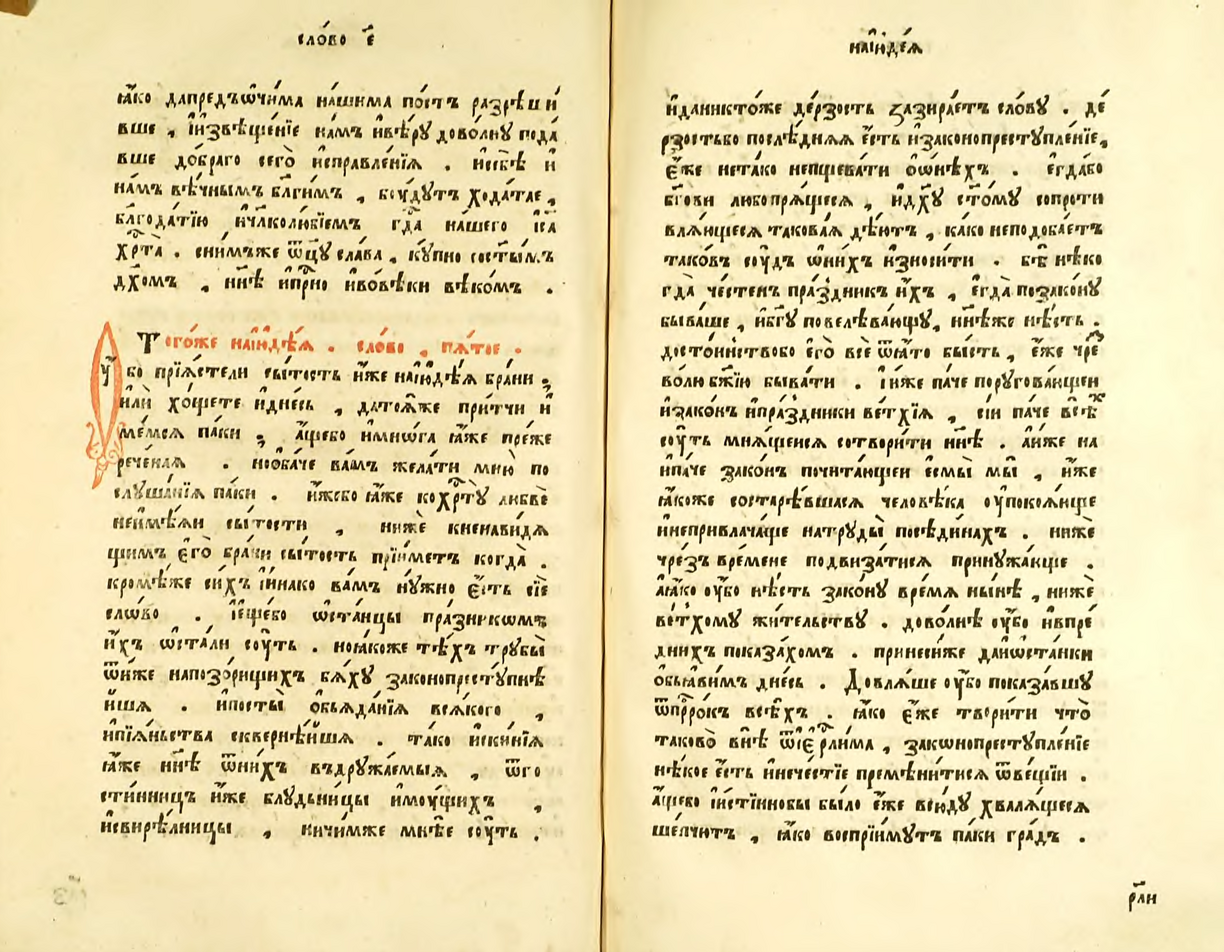 сло́во є҃
ꙗ҆́ко дапредъѡ҆чи́ма на́шима по́стъ разрѣши́
вше , и҆извѣще́нїе на́мъ и҆вѣ́рꙋ дово́лнꙋ пода́
вше до́браго сегѡ̀ и҆справле́нїѧ . и҆себѣ̀ и҆
на́мъ вѣ́чнымъ бл҃ги́мъ , бꙋ́дꙋтъ хода́тае ,
благода́тїю и҆чл҃колю́бїемъ гдⷭ҇а на́шего і҆са
хрⷭ҇та̀ . сни́мъже ѿц҃ꙋ сла́ва , кꙋ́пно состы́мъ
дх҃омъ , нн҃ѣ и҆прⷭ҇но и҆вовѣ́ки вѣко́мъ .
Того́же наїꙋдѣ́ѧ . сло́во , пѧ́тое .
Оу҆́бо прїѧ́стели сы́тость и҆́же наїꙋдѣ́ѧ бра́ни ,
и҆лѝ хо́щете и҆дне́сь , датоѧ҆́же при́тчи и҆
ме́мсѧ па́ки , а҆́щебо и҆мнѡ́га ꙗ҆́же пре́же
рече́наѧ . нооба́че ва́мъ жела́ти мню̀ по
слꙋша́нїѧ па́ки . и҆́жебо ꙗ҆́же кохрⷭ҇тꙋ̀ любвѐ
неимѣ́ѧи сы́тости , нижѐ кненави́дѧ
щимъ є҆го̀ бра́ни сы́тость прїи́метъ когда̀ .
кромѣ́же си́хъ и҆и́нако ва́мъ нꙋ́жно є҆́сть сїѐ
сло́во . і҆е҆ще́бо ѡ҆ста́нцы пра́зникѡмъ
и҆́хъ ѡ҆ста́ли сꙋ́ть . ноꙗ҆́коже тѣ́хъ трꙋбы̀
ѿни́же напозо́рищихъ бѧ́хꙋ законопрестꙋ́пнѣ
и҆шѧ . и҆посты̀ ѻ҆б̾ѧда́нїѧ всѧ́кого ,
и҆пїѧ́ньства скверне́ишѧ . та́ко и҆ски́нїѧ
ꙗ҆́же нн҃ѣ ѿни́хъ въдрꙋжа́емыѧ , ѿго
сти́нницъ и҆́же блꙋдьни́цы и҆мꙋ́щихъ ,
и҆свирѣ́лницы , ничи́мже мнѣ́е сꙋ́ть .
наїꙋде́ѧ
и҆даникто́же де́рзость зазира́етъ сло́вꙋ . де́
рзостьбо послѣ́днѧѧ є҆́сть и҆законопрестꙋпле́нїе,
є҆́же нета́ко непщева́ти ѻ҆ѡ҆нѣ́хъ . є҆гда́бо
бг҃ови любопрѧ́щесѧ , и҆дх҃ꙋ ст҃о́мꙋ сопроти
влѧ́ющесѧ такова́ѧ дѣ́ютъ , ка́ко неподоба́етъ
тако́въ сꙋ́дъ ѡ҆ни́хъ и҆зноси́ти . бѣ̀ нѣ́ко
гда̀ че́стенъ пра́здникъ и҆́хъ , є҆гда̀ позако́нꙋ
быва́ше , и҆бг҃ꙋ повелѣва́ющꙋ, нн҃ѣже нѣ́сть .
досто́инствобо є҆го̀ всѐ ѿѧ́то бы́сть , є҆́же чре
во́лю бж҃їю быва́ти . и҆и́же па́че порꙋгова́вшеи
и҆зако́нъ и҆пра́здники ве́тхїѧ , сі́и па́че всѣ́х
сꙋ́ть мнѧ́щеисѧ сотвори́ти нн҃ѣ . а҆и́же на
ипа́че зако́нъ почита́ющеи є҆смы̀ мы̀ , и҆́же
ꙗ҆́коже состарѣ́вшасѧ человѣ́ка оу҆покоѧ́юще
и҆непривлача́ще натрꙋды̀ посѣди́нахъ . нижѐ
чре́зъ вре́мене подвиза́тисѧ принꙋжа́юще .
а҆ꙗ҆́ко оу҆́бо нѣ́сть зако́нꙋ вре́мѧ ны́нѣ , нижѐ
ве́тхомꙋ жи́тельствꙋ . дово́лнѣ оу҆́бо и҆впре́
днихъ показа́хомъ . принеси́же даиѡ҆ста́нки
ѻ҆бъѧ́вимъ дне́сь . Довлѧ́ше оу҆́бо показа́вшꙋ
ѿпрⷪ҇ро́къ всѣ́хъ . ꙗ҆́ко є҆́же твори́ти что̀
таково̀ внѣ̀ ѿіер҇ⷭли́ма , законопрестꙋпле́нїе
нѣ́кое є҆́сть и҆нече́стїе премѣни́тисѧ ѿве́щїи .
а҆́щебо и҆и́стїннобы бы́ло є҆́же всю́дꙋ хвалѧ́щесѧ
ше́пчютъ , ꙗ҆́ко воспрїи́мꙋтъ па́ки гра́дъ .
рл҃и